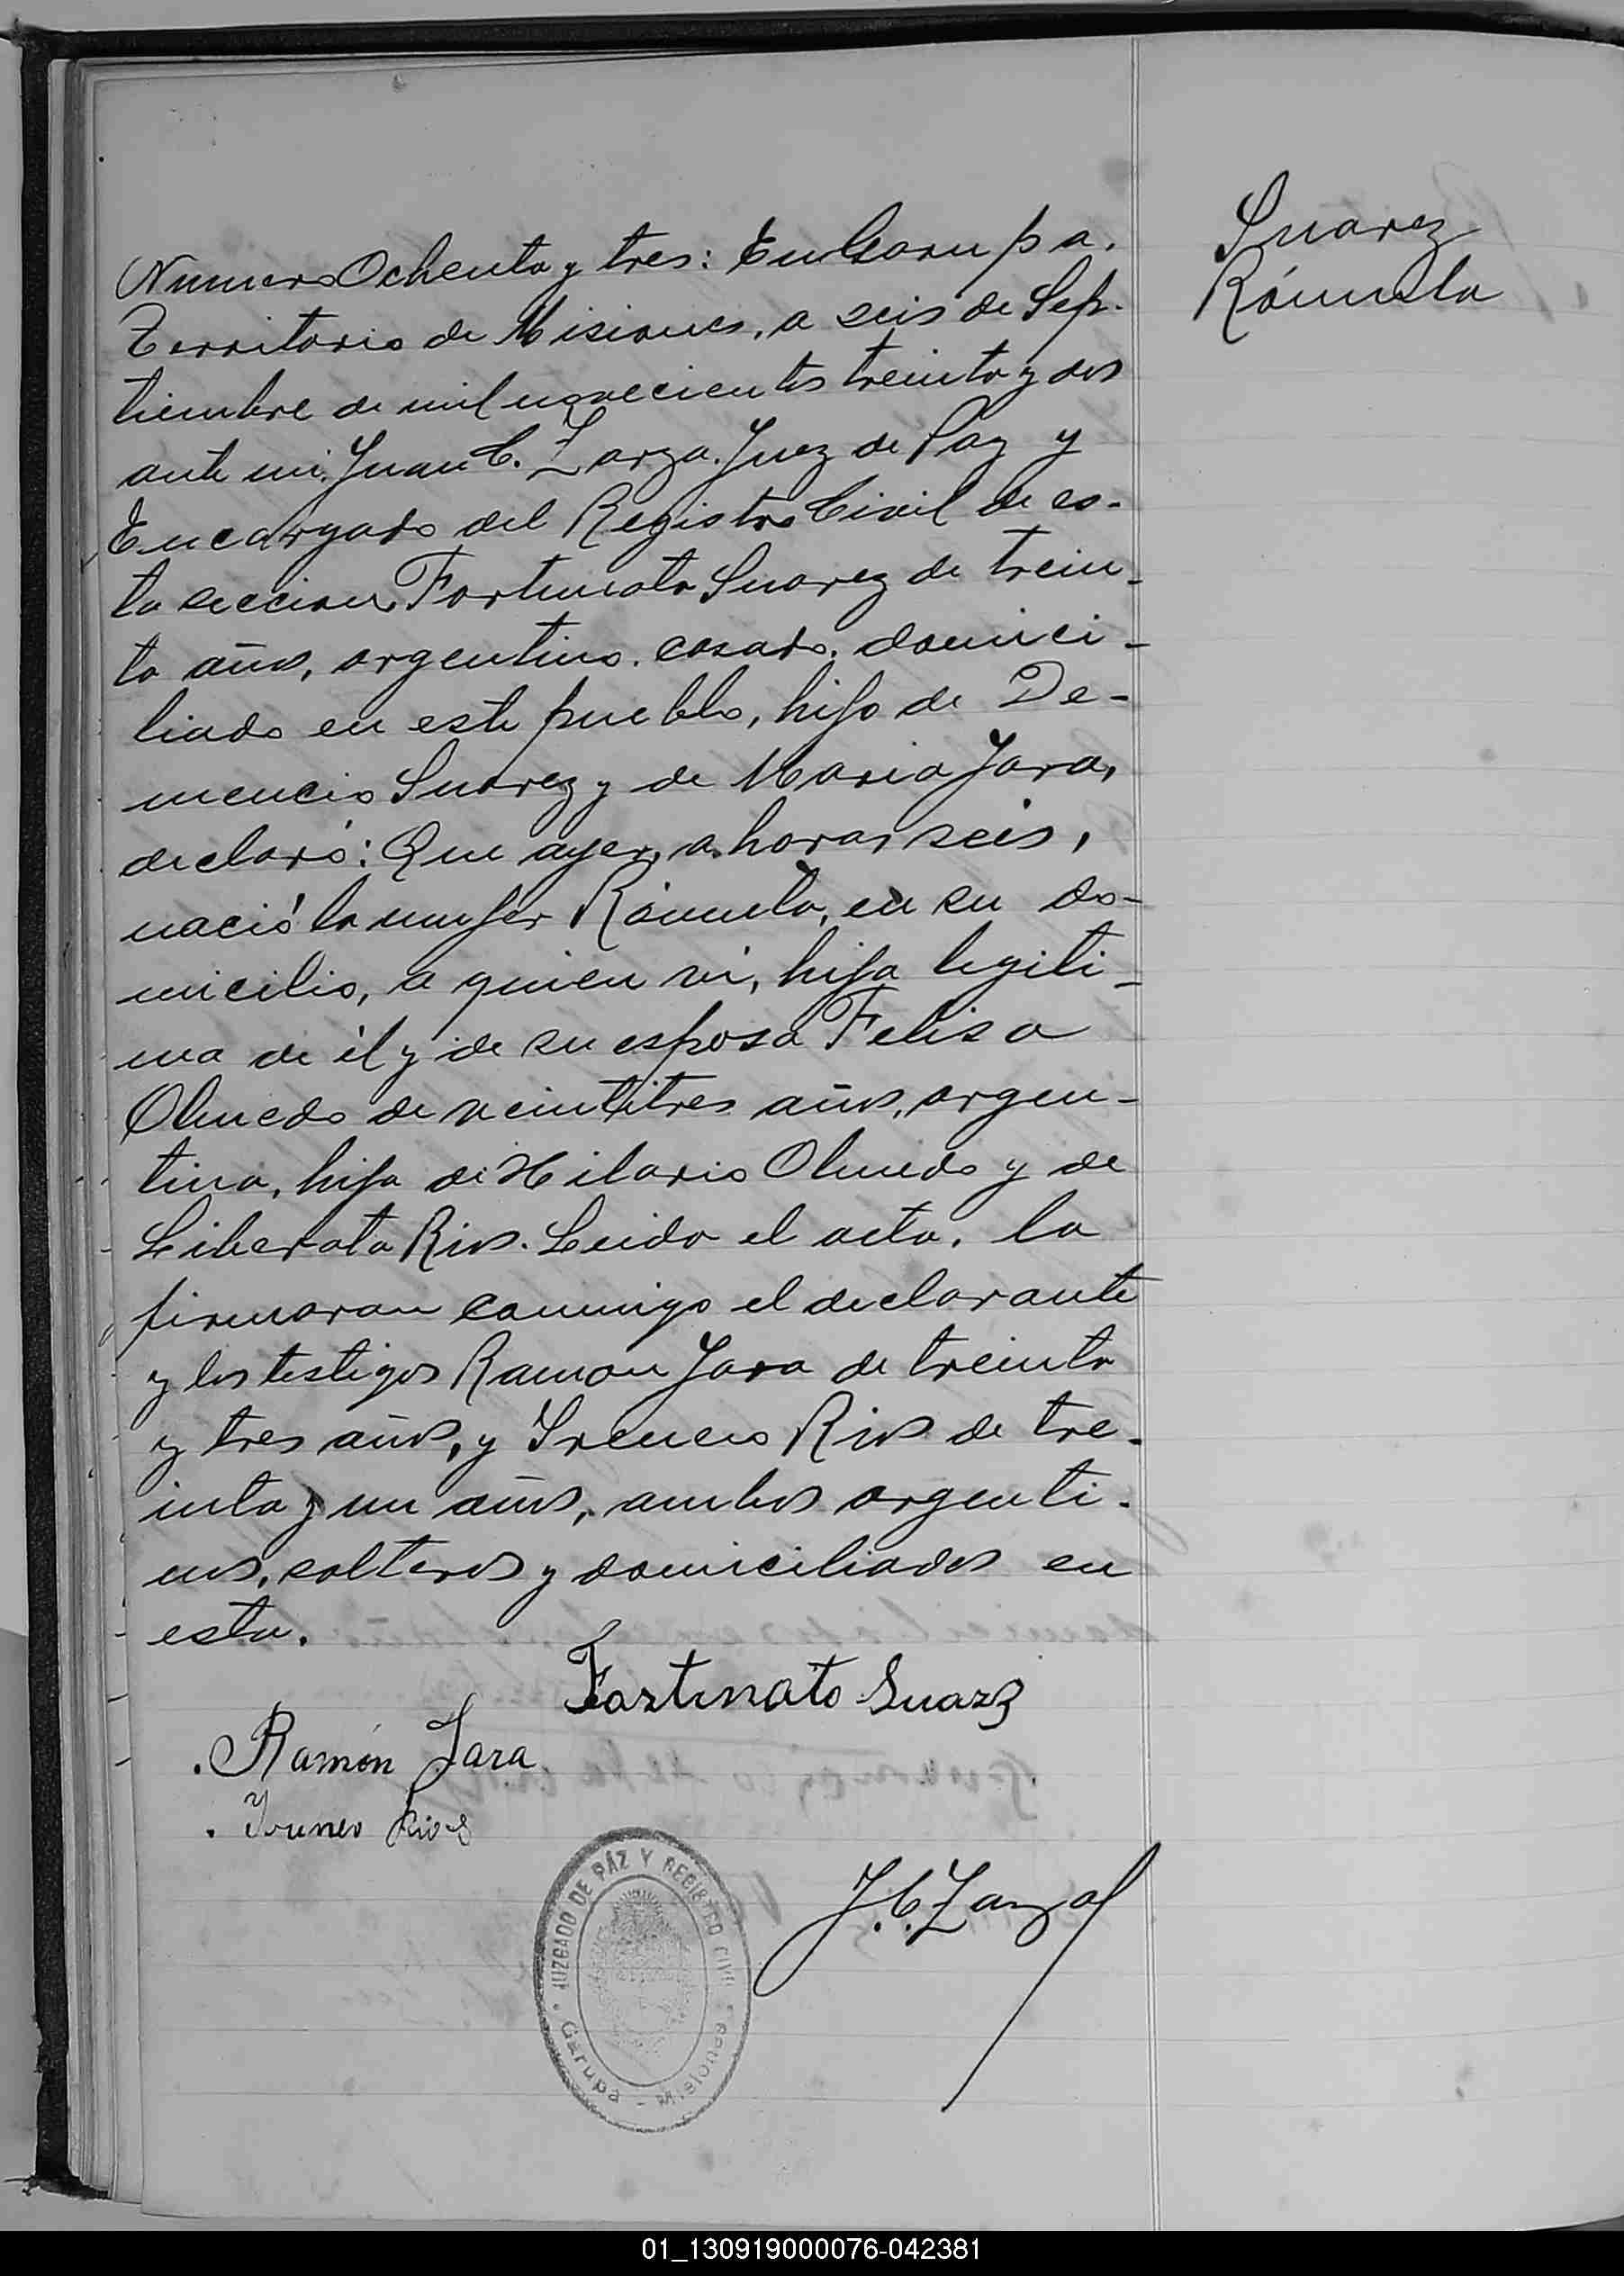 Suarez
Rómula
Numero Ochenta y tres: En Garupa.
Territorio de Misiones, a seis de Sep-
tiembre de mil novecientos treinta y dos
ante mi. Juan C. Zarza. Juez de Paz y
Encargado del Registro Civil de es-
ta seccion, Fortunato Suarez de trein-
ta años, argentino. casado. domici-
liado en este pueblo, hijo de De-
mencio Suarez y de Maria Jara,
declaró: Que ayer, a horas seis,
nació la mujer Rómula, en su do-
micilio, a quien vi, hija legiti-
ma de él y de su esposa Felisa
Olmedo de veintitres años, argen-
tina, hija de Hilario Olmedo y de
Liberata Rios. Leida el acta, la
firmaron conmigo el declarante
y los testigos Ramon Jara de treinta
y tres años, y Ireneo Rios de tre-
inta y un años, ambos argenti-
nos, solteros y domiciliados en
esta.
Fortunato Suarz
Ramón Jara
Iruneo Rios
J. C. Zarza
JUZGADO DE PAZ Y REGISTRO CIVIL
Garupa - Misiones
01_130919000076-042381